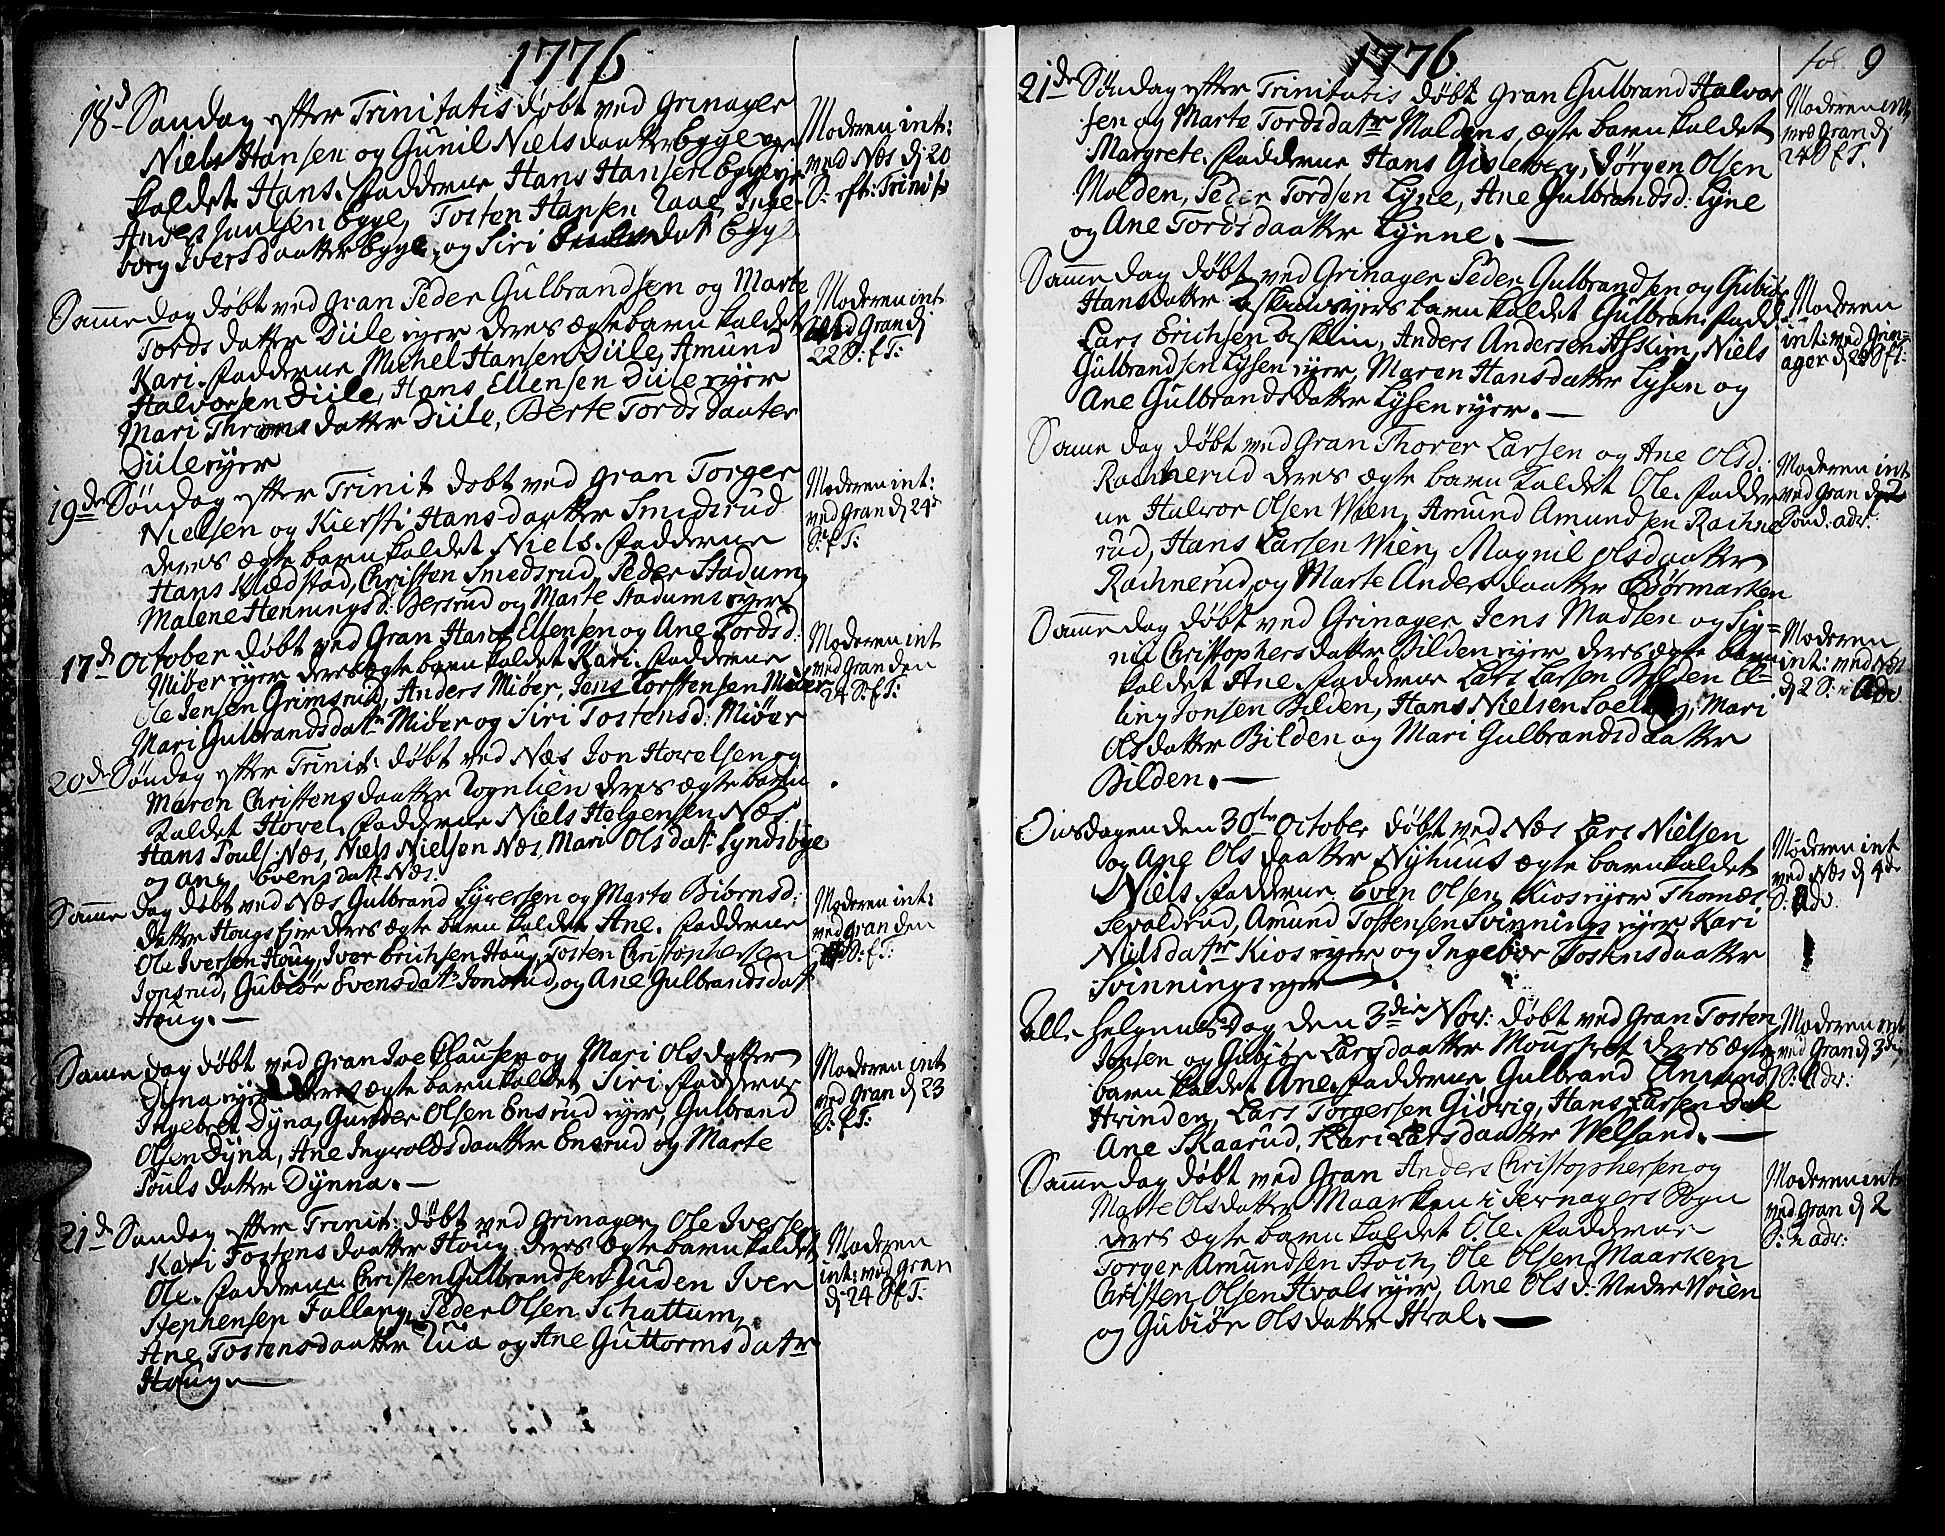 1776
18d Søndag efter Trinitatis døbt ved Grinager
Niels Hansen og Gunil Nielsdaatter Egge eyer
kaldet Hans. Fadderne Hans Hansen Eggeeje
Anders Juulsen Egge, Tosten Hansen Raae, Inge-
borg Iversdaatter Egge, og Siri datt Egge
Moderen int:
ved Næs dj 20
S: eft: Trinit
Samme dag døbt ved Gran Peder Gulbrandsen og Marte
Tords datter Diile eyer deres ægte barn kaldet
Kari. Fadderne Michel Hansen Diile, Amund
Halvorsen Diile, Hans Ellensen Diile eyer
Mari Throns datter Diile, Berte Tords daater
Diile eyer
Moderen int
ved Gran dj
22 S: f T:
19de Søndag efter Trinit døbt ved Gran Torger
Nielsen og Kiersti Hans daatter Smedsrud
deres ægte barn kaldet Niels. Fadderne
Hans Klædstad, Christen Smedsrud, Peder Stadum,
Malene Hennings d: Bersrud og Marte Stadums eyer
Moderen int:
ved Gran dj 24de
S: f T:
17de October døbt ved Gran Hans Ellensen og Ane Tords d:
Miøer eyer deres ægte barn kaldet Kari. Fadderne
Ole Jensen Grimsrud, Anders Miøer, Jens Torstensen Miøer
Mari Gulbrandsdatr Miøer og Siri Tostens d: Miøer
Moderen int
ved Gran den
24 S: f T:
20de Søndag efter Trinit: døbt ved Næs Jon Hovelsen og
Maren Christens daatter Rognlien deres ægte barn
kaldet Hovel. Fadderne Niels Helgensen Næs
Hans Pouls: Næs, Niels Nielsen Næs, Mari Olsdatr Lyndsbye
og Ane Evensdatr Næs.
Samme dag døbt ved Næs Gulbrand Syversen og Marte Biørns d:
datter Hougs Eyer deres ægte barn kaldet Ane. Fadderne
Ole Iversen Houg, Iver Erichsen Houg, Tosten Christophersen
Jonsrud, Gubiør Evensdatr Jonsrud, og Ane Gulbrandsdat
Houg. —
Moderen int:
ved Gran den
S: f T:
Samme dag døbt ved Gran Joe Clausen og Mari Ols datter
Dyna eyer deres ægte barn kaldet Siri. Fadderne
Ingebret Dyna, Gunder Olsen Ensrud eyer, Gulbrand
Olsen Dyna, Ane Ingvoldsdaatter Ensrud og Marte
Pouls datter Dynna. —
Moderen int
ved Gran dj 23
S: f T:
21de Søndag efter Trinit: døbt ved Grinager, Ole Iversen
Kari Tostens daatter Houg deres ægte barn kaldet
Ole. Fadderne Christen Gulbrandsen Ruden Iver
Stephensen Fallang, Peder Olsen Schattum,
Ane Tostensdaatter Rua og Ane Guttormsdatr
Houg. —
Moderen
int: ved Gran
dj 24 S: f T:
1776
fol. 9
21de Søndag efter Trinitatis døbt Gran Gulbrand Halvor
sen og Marte Tordsdatr Moldens ægte barn kaldet
Margrete. Fadderne Hans Gisleberg, Jørgen Olsen
Molden, Peder Tordsen Lyne, Ane Gulbrandsd: Lyne
og Ane Tords daatter Lynne. —
Moderen int
ved Gran dj
24 S f T.
Samme dag døbt ved Grinager Peder Gulbrandsen og Gubiør
Hansdatter eyers barn kaldet Gulbran. Fadd
Lars Erichsen Anders Andersen Askim, Niels
Gulbrandsen Lysen eyer, Maren Hansdatter Lysen og
Ane Gulbrandsdatter Lysen eyer. —
Moderen
int: ved Grin-
ager dj 24 S f T:
Samme dag døbt ved Gran Thorer Larsen og Ane Olsd:
Rachnerud deres ægte barn kaldet Ole. Fadder
ne Halvor Olsen Wien, Amund Amundsen Rachne
rud, Hans Larsen Wien, Magnil Olsdaatter
Rachnerud og Marte Anders daatter Biørmarken
Moderen int
ved Gran dj 2
Sønd: adv:
Samme dag døbt ved Grinager Jens Madsen og Sig-
ne Christophersdatter Bilden eyer deres ægte barn
kaldet Ane. Fadderne Lars Larsen Bilden El-
ling Jonsen Bilden, Hans Nielsen Mari
Olsdatter Bilden og Mari Gulbrandsdaatter
Bilden. —
Moderen
int: ved Næs
dj 2 S: i Adv
Onsdagen den 30te October døbt ved Næs Lars Nielsen
og Ane Ols daatter Nyhuus ægte barn kaldet
Niels. Fadderne Even Olsen Kios eyer Thomæs
Sevaldrud, Amund Tostensen Svinnings eyer Kari
Nielsdatr Kios eyer og Ingebør Tostensdaatter
Svinnings eyer —
Moderen int
ved Næs dj 4de
S: Adv.
Alle helgenes Dag den 3die Nov: døbt ved Gran Tosten
Jonsen og Gubiør Larsdaatter deres ægte
barn kaldet Ane. Fadderne Gulbrand Amunds
Hvinden, Lars Torgersen Gidvig, Hans Larsen Dal
Ane Skaarud, Kari Larsdaatter Welsand. —
Moderen int
ved Gran dj 3die
S: Adv:
Samme dag døbt ved Gran Anders Christophersen og
Marte Olsdatter Maarken i Jevnagers Sogn
deres ægte barn kaldet Ole. Fadderne
Torger Amundsen Hoch, Ole Olsen Maarken
Christen Olsen Hvals eyer, Ane Ols d: Nedre Woien
og Gubiør Olsdatter Hval. —
Moderen int
ved Gran dj 2
S: i adv: